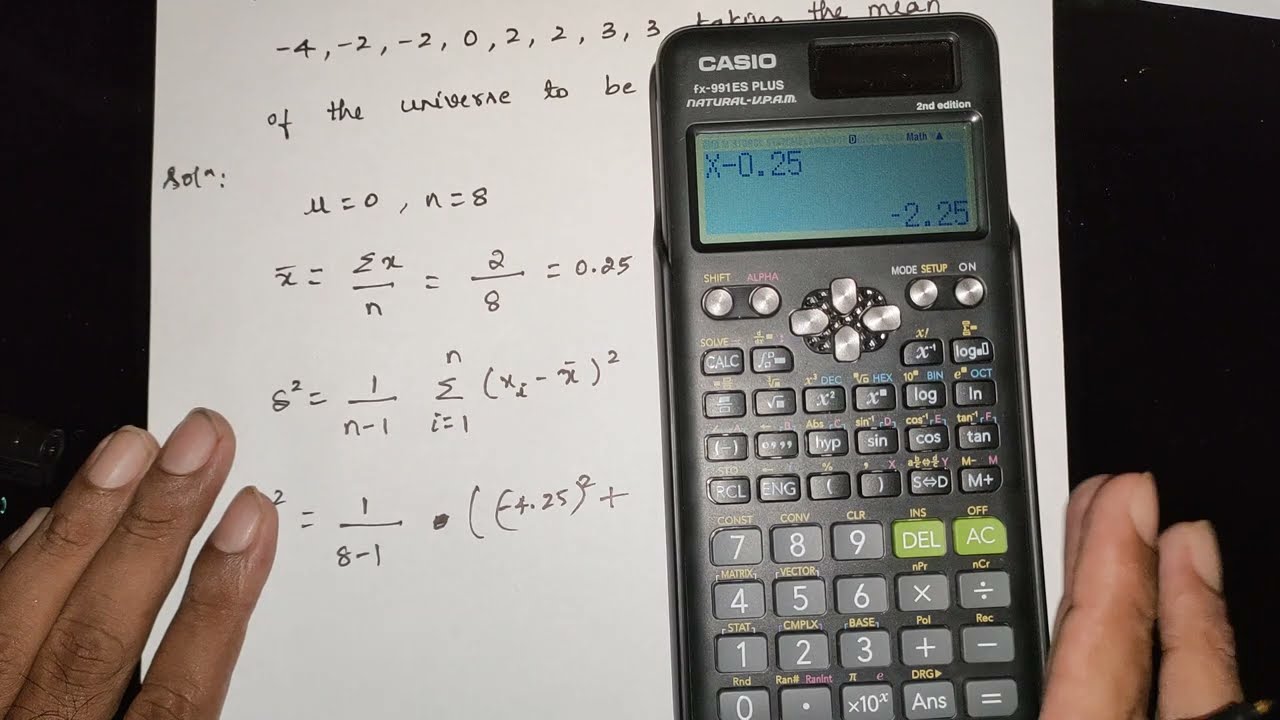 -4, -2, -2, 0, 2, 2, 3, 3 taking the mean
of the universe to be
Solⁿ:
μ = 0 , n = 8
x̄ = Σx/n = 2/8 = 0.25
s² = 1/(n-1) Σ_{i=1}^{n} (x_i - x̄)²
² = 1/(8-1) · ((-4.25)² +
CASIO
fx-991ES PLUS
NATURAL-V.P.A.M.
2nd edition
D Math ▲
X-0.25
-2.25
SHIFT ALPHA MODE SETUP ON
SOLVE = d/dx = : x! Σ=
CALC ∫ x⁻¹ log
x³ DEC ˣ√ HEX 10ˣ BIN eˣ OCT
√ x² xⁿ log ln
A B Abs C sin⁻¹ D cos⁻¹ E tan⁻¹ F
(−) °'" hyp sin cos tan
STO ← % , X Y M- M
RCL ENG ( ) S⇔D M+
CONST CONV CLR INS OFF
7 8 9 DEL AC
MATRIX VECTOR nPr nCr
4 5 6 × ÷
STAT CMPLX BASE Pol Rec
1 2 3 + −
Rnd Ran# RanInt π e DRG▶
0 . ×10ˣ Ans =